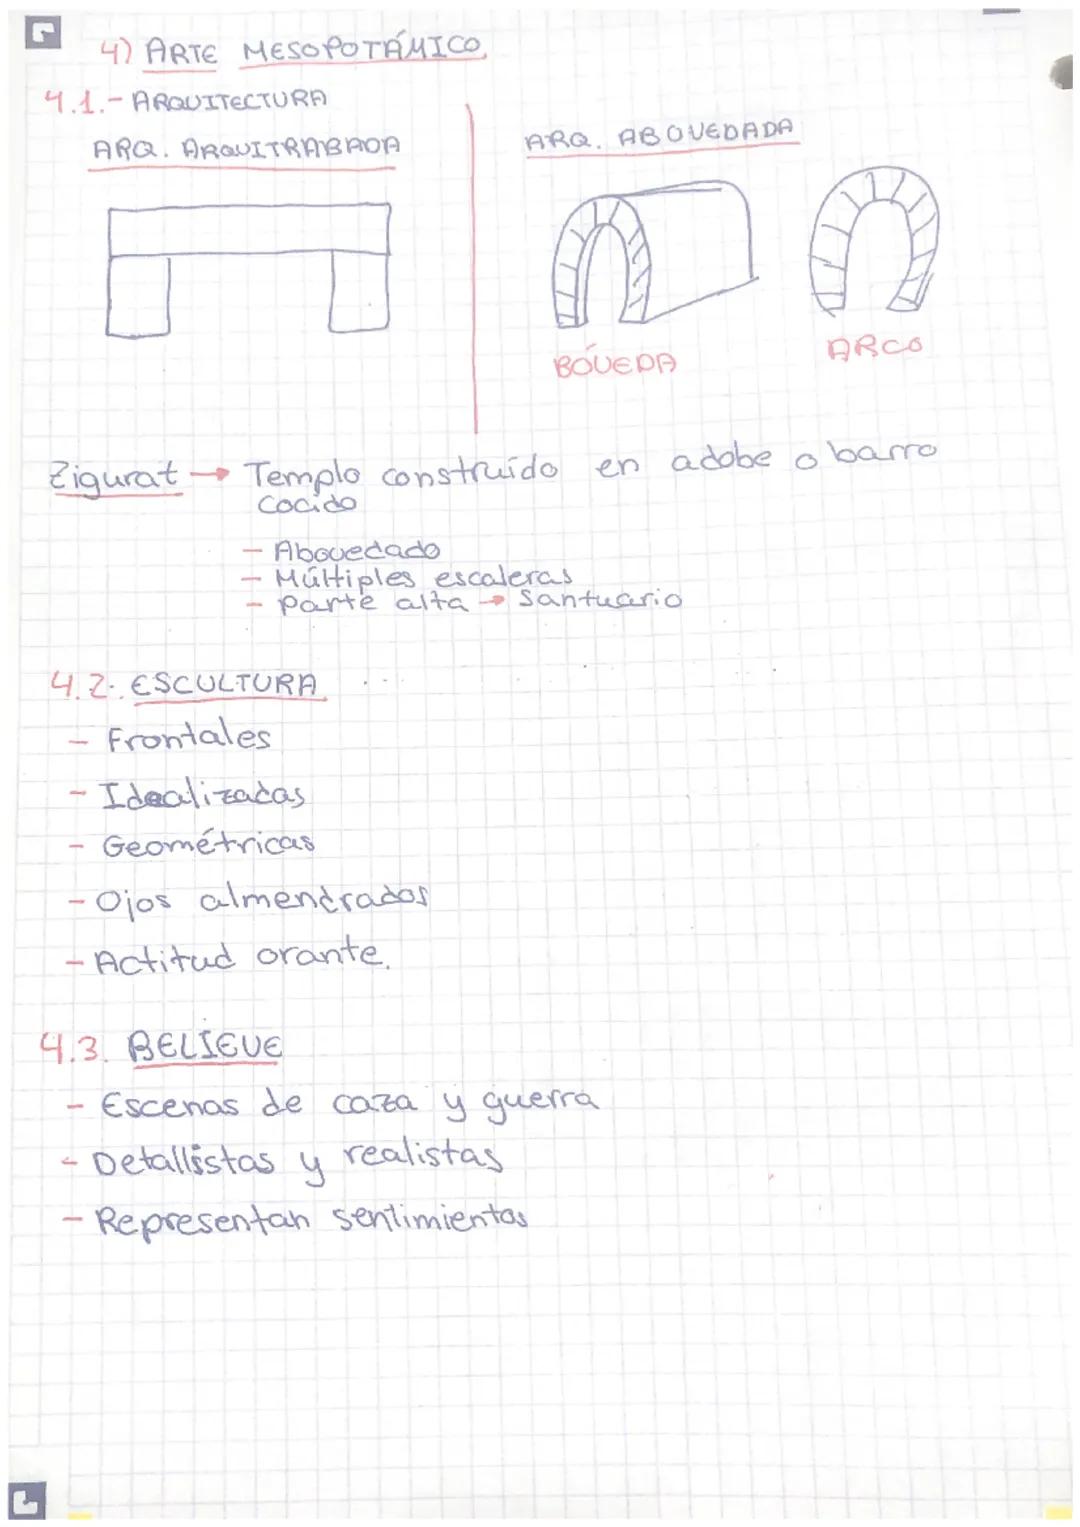 4) ARTE MESOPOTÁMICO
4.1.- ARQUITECTURA
ARQ. ARQUITRABADA
ARQ. ABOVEDADA
BÓVEDA
ARCO
Zigurat → Templo construído en adobe o barro
cocido
- Abovedado
- Múltiples escaleras
- Parte alta → Santuario
4.2.- ESCULTURA
- Frontales
- Idealizadas
- Geométricas
- Ojos almendrados
- Actitud orante.
4.3. RELIEVE
- Escenas de caza y guerra
- Detallistas y realistas
- Representan sentimientos